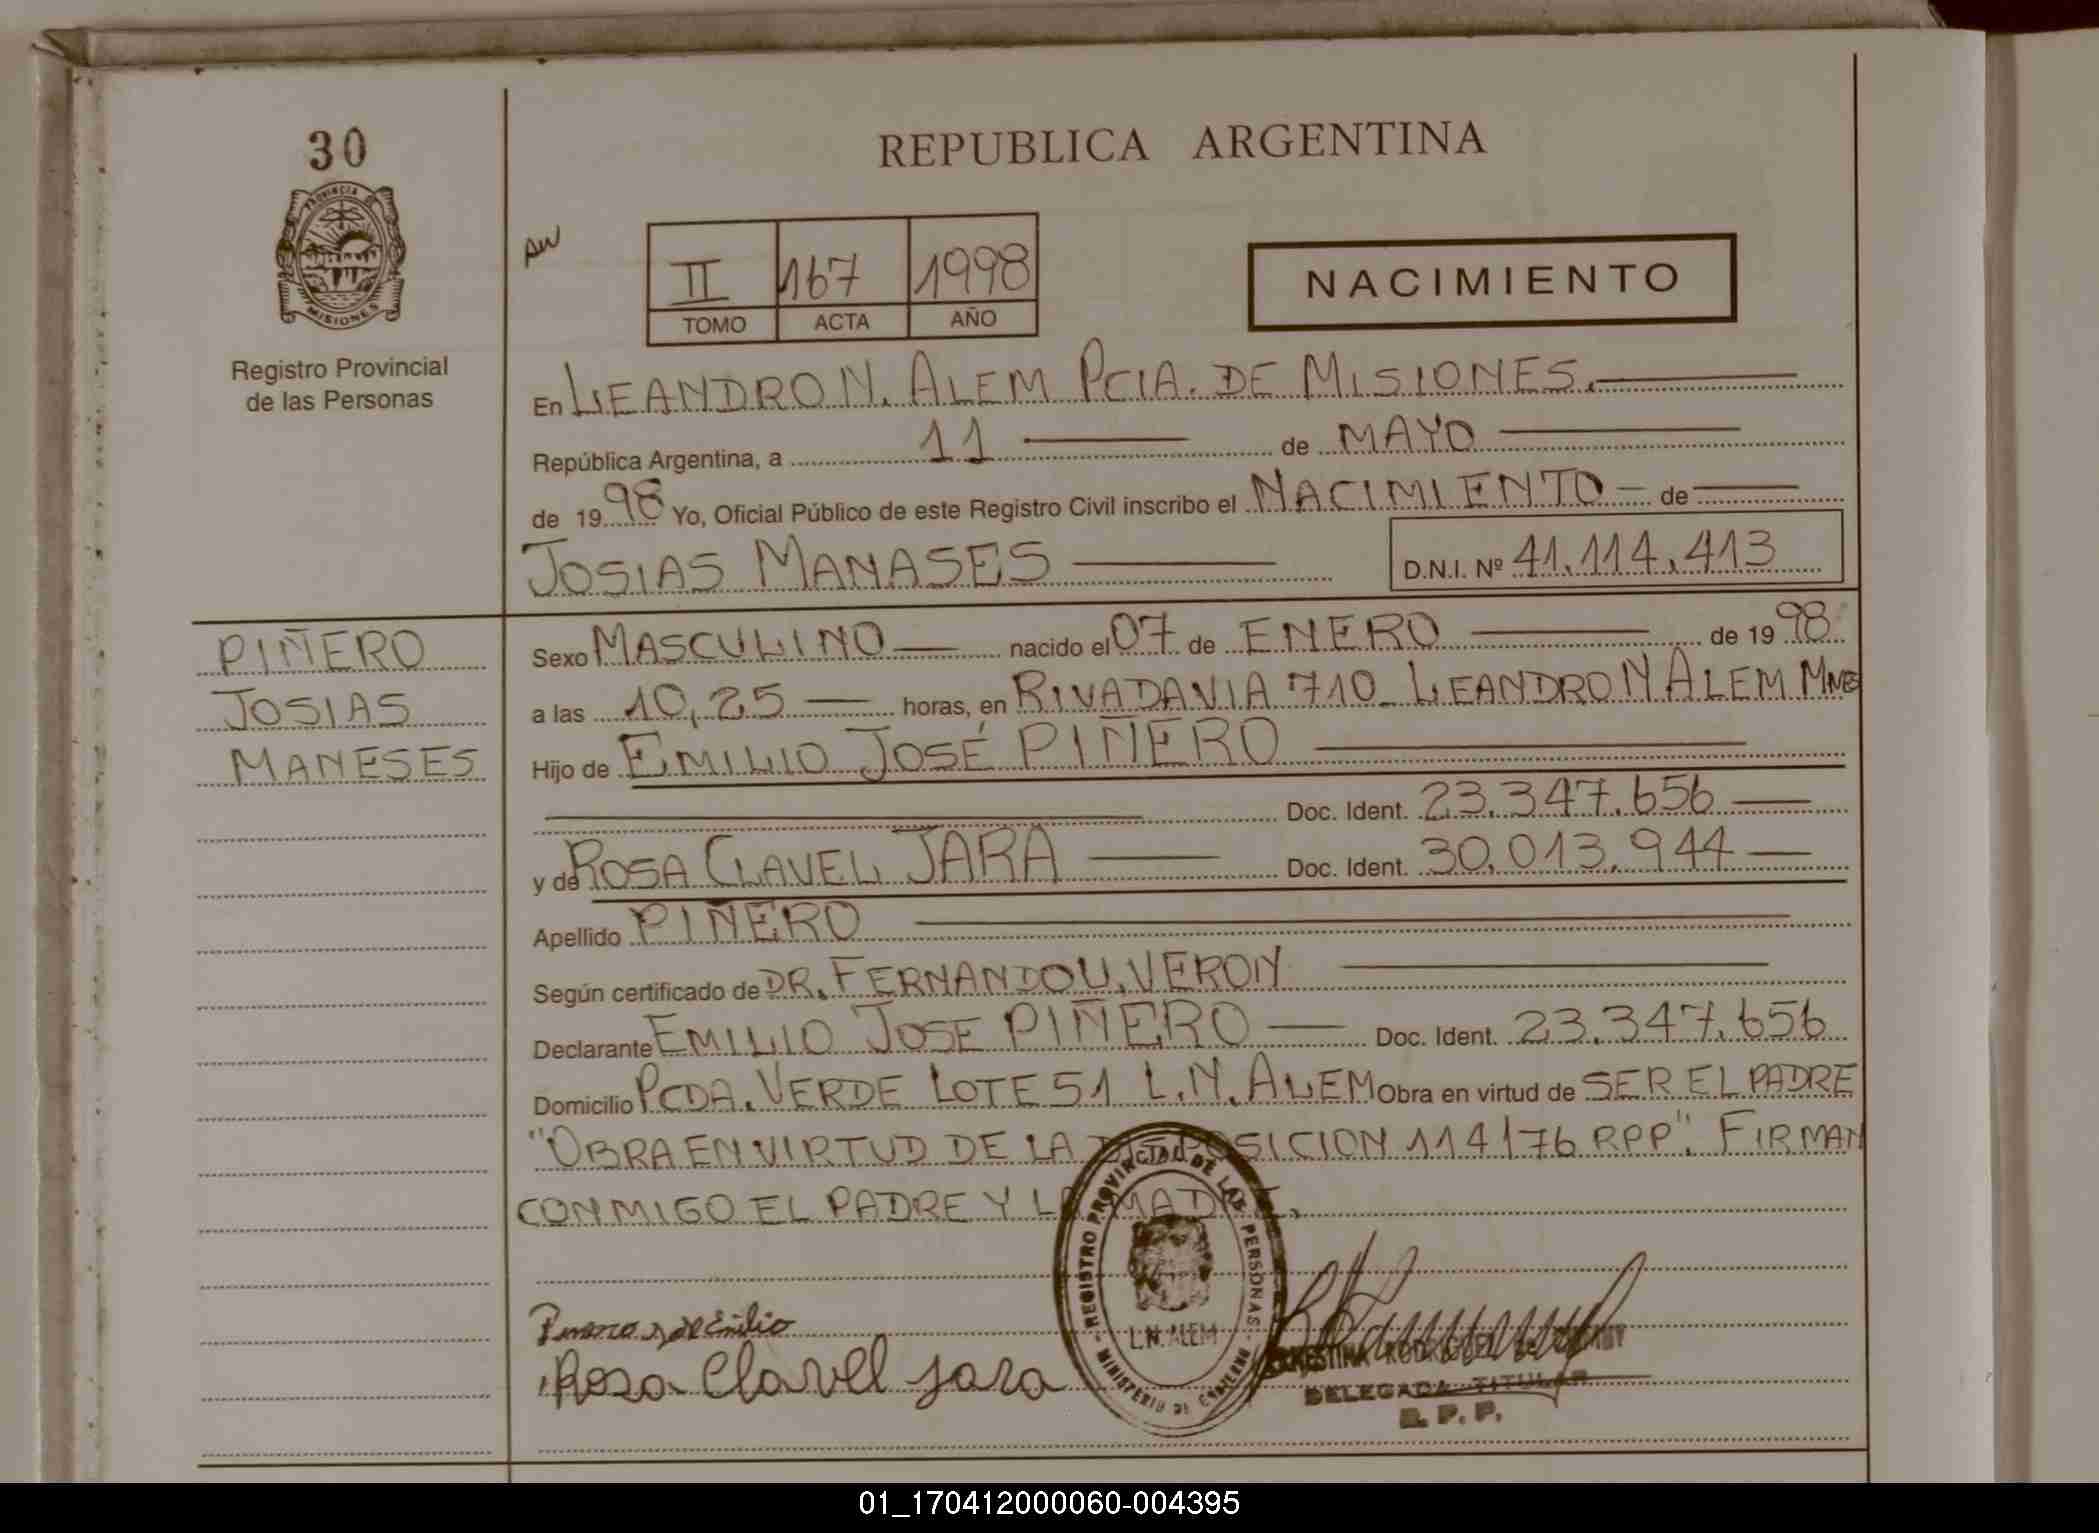 30
PROVINCIA
MISIONES
Registro Provincial
de las Personas
REPUBLICA ARGENTINA
II 167 1998
TOMO ACTA AÑO
NACIMIENTO
En LEANDRO N. ALEM PCIA. DE MISIONES.
República Argentina, a 11 de MAYO
de 1998 Yo, Oficial Público de este Registro Civil inscribo el NACIMIENTO de
JOSIAS MANASES D.N.I. Nº 41.114.413
PIÑERO
JOSIAS
MANESES
Sexo MASCULINO nacido el 07 de ENERO de 1998
a las 10,25 horas, en RIVADAVIA 710 LEANDRO N ALEM MNES
Hijo de EMILIO JOSÉ PIÑERO
Doc. Ident. 23.347.656
y de ROSA CLAVEL JARA Doc. Ident. 30.013.944
Apellido PIÑERO
Según certificado de DR. FERNANDO U. VERON
Declarante EMILIO JOSE PIÑERO Doc. Ident. 23.347.656
Domicilio PCDA. VERDE LOTE 51 L.N. ALEM Obra en virtud de SER EL PADRE
"OBRA EN VIRTUD DE LA DISPOSICION 114/76 RPP". FIRMAN
CONMIGO EL PADRE Y LA MADRE.
REGISTRO PROVINCIAL DE LAS PERSONAS
L.N. ALEM
MINISTERIO DE GOBIERNO
Rosa Clavel Jara
ERNESTINA RODRIGUEZ
DELEGADA TITULAR
R. P. P.
01_170412000060-004395